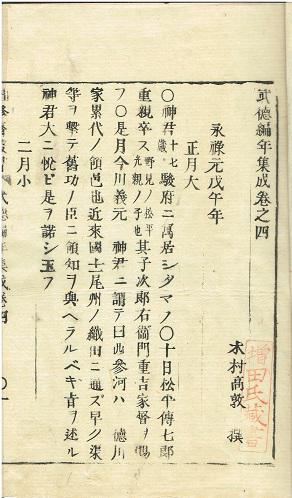 武德編年集成卷之四
木村高敦 撰
永祿元戊午年
正月大
〇神君十七歲駿府ニ寓居シタマフ〇十日松平傳七郎
重親卒ス野見ノ松平光親ノ子也其子次郎右衞門重吉家督ヲ賜
フ〇是月今川義元 神君ニ謂テ曰此參河ハ 德川
家累代ノ領邑也近來國士尾州ノ織田ニ通ズ早ク渠
等ヲ擊テ舊功ノ臣ニ領知ヲ與ヘラルベキ旨ヲ述ル
神君大ニ悅ビ是ヲ諾シ玉フ
二月小
增田氏藏書
武德編年集成卷四